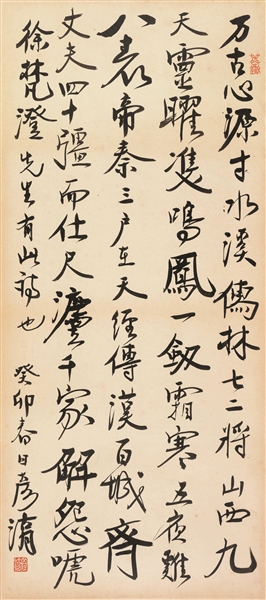 万古心源寸水溪儒林七二将山西九
天靈曜隻鳴鳳一劔霜寒五夜雞
八表帝秦三户在天經傳漢百城齊
丈夫四十彊而仕尺灋千家解怨嗁
徐梵澄先生有此詩也
癸卯春日彦